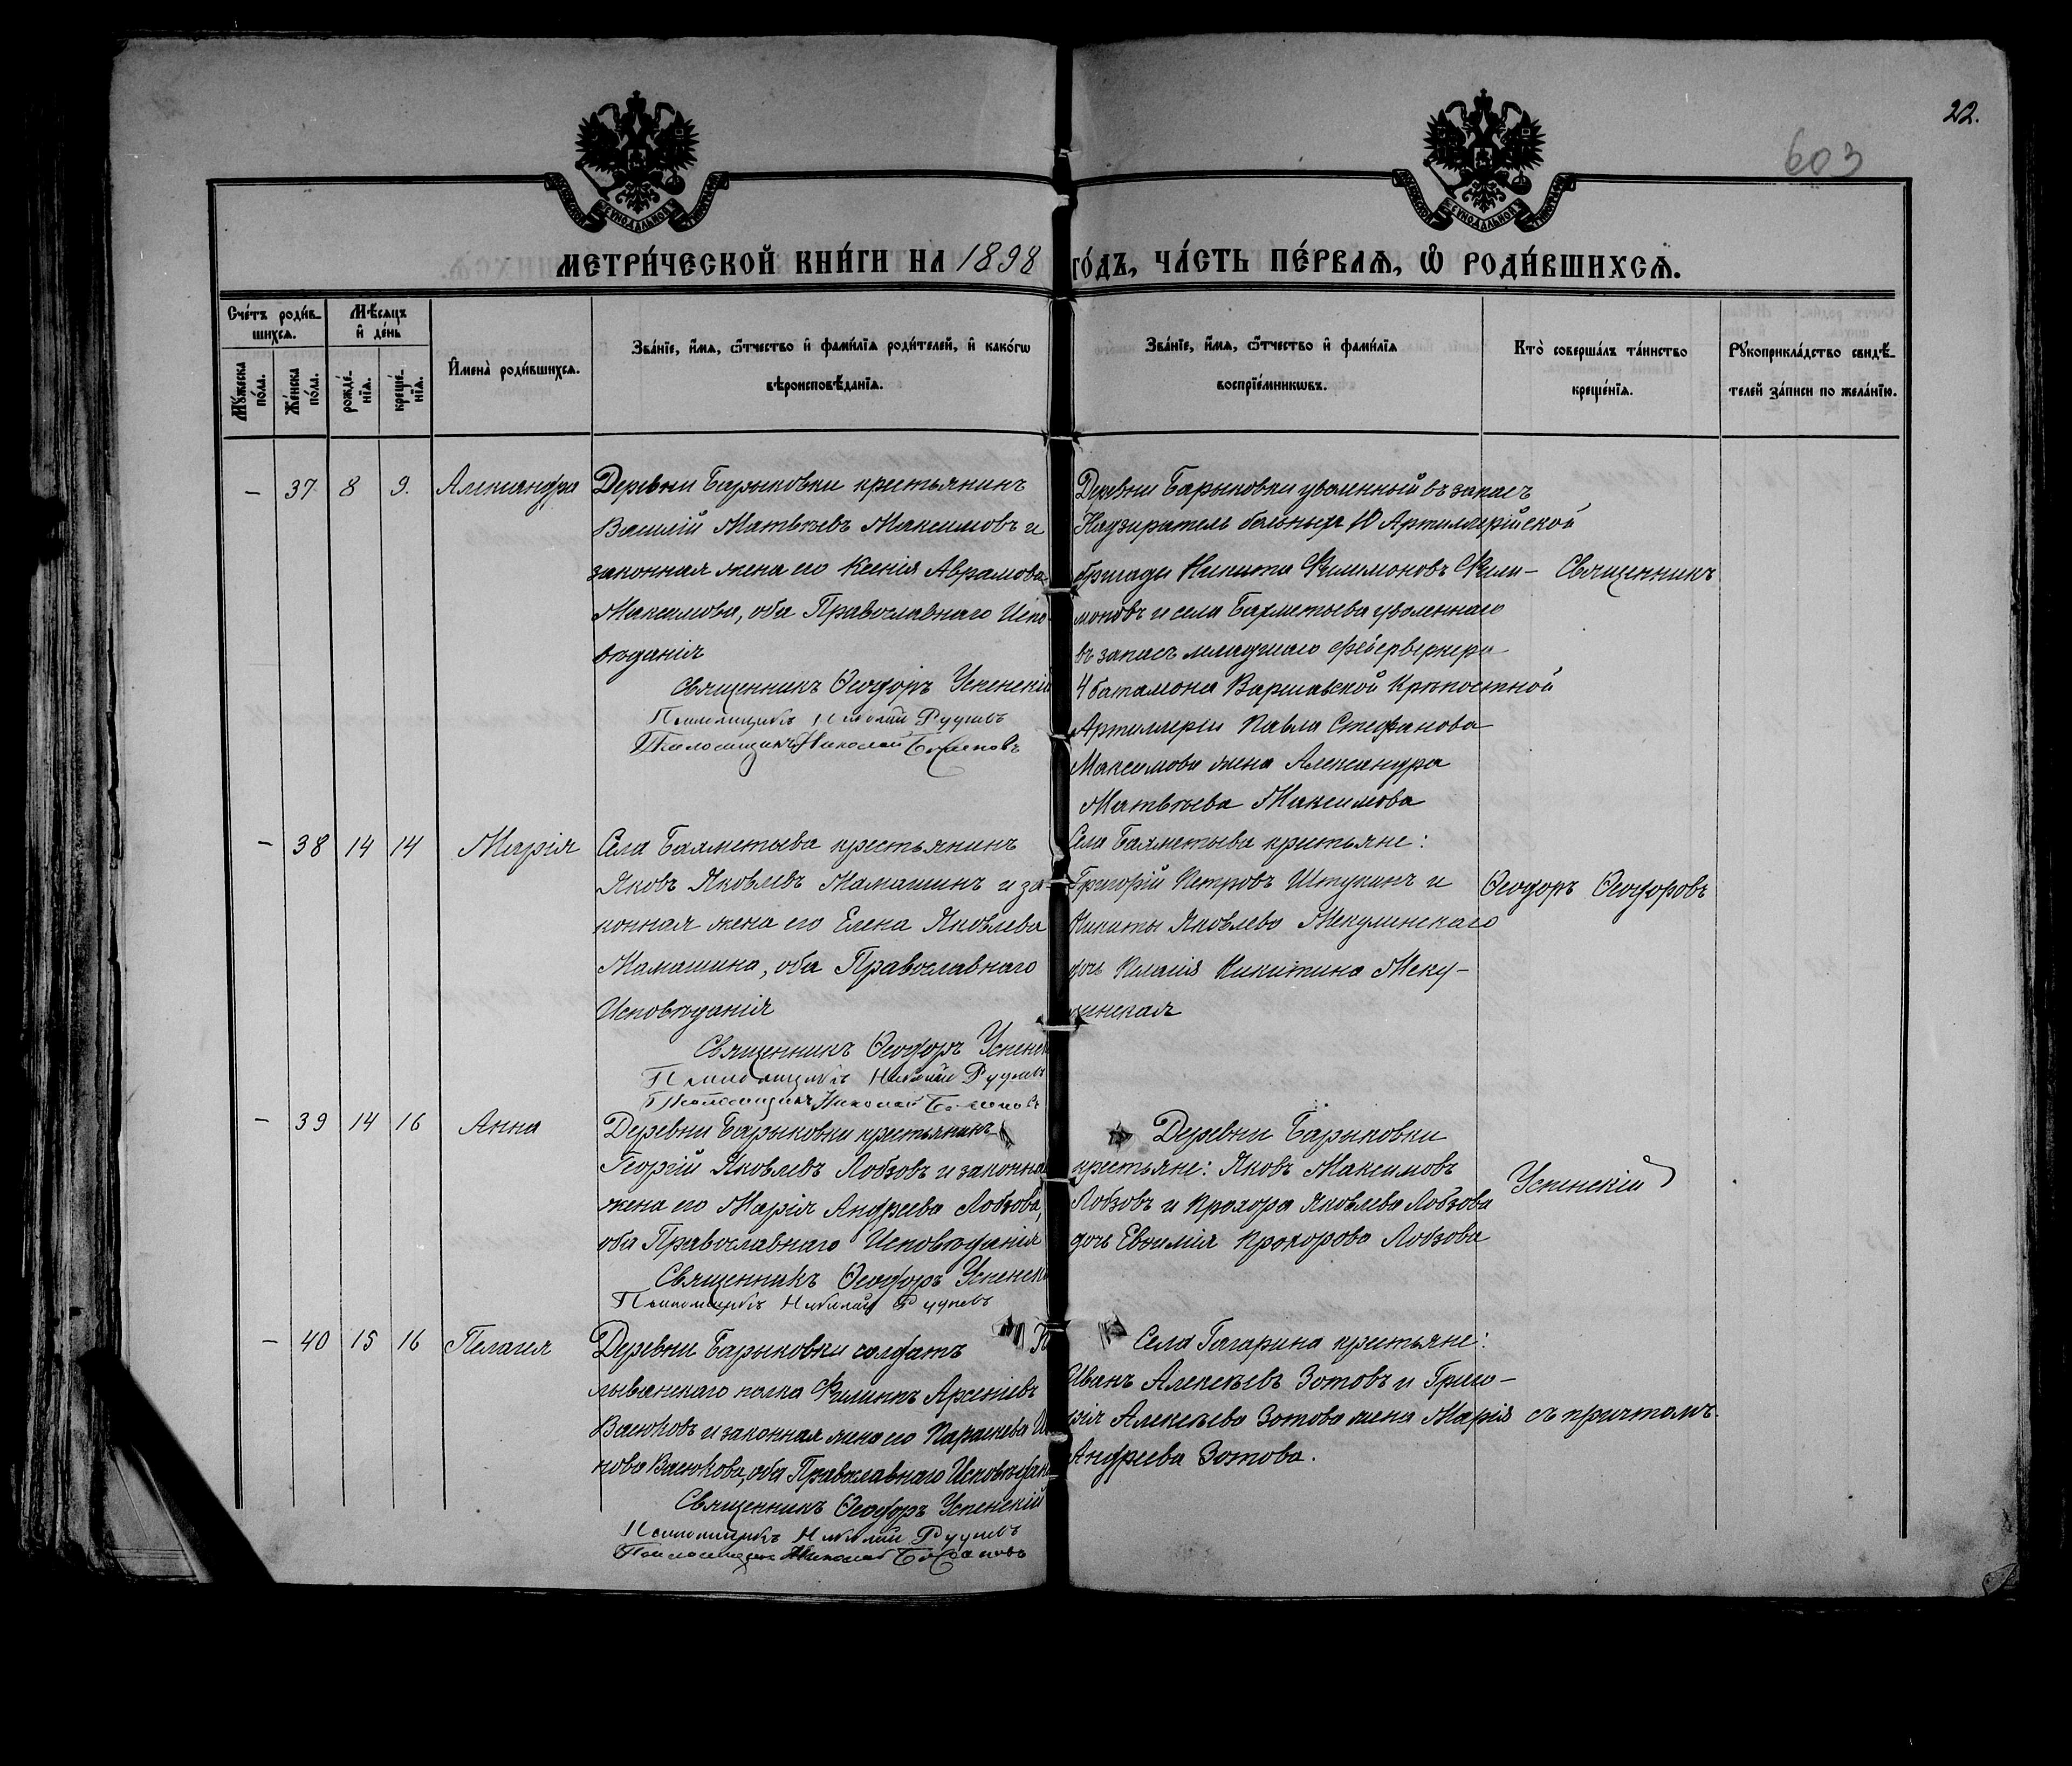 22.
603
МЕТРИ́ЧЕСКОЙ КНИ́ГИ НА 1898 ГО́ДЪ, ЧА́СТЬ ПЕ́РВАѦ, Ѡ РОДИ́ВШИХСѦ.
Сче́тъ роди́в-
шихсѧ.
Мꙋ́жеска по́ла.
Же́нска по́ла.
Мѣ́сѧцъ
и҆ де́нь
рожде́-
нїѧ.
креще́-
нїѧ.
И҆мена̀ роди́вшихсѧ.
Зва́нїе, и҆́мѧ, ѻ҆́тчество и҆ фами́лїѧ роди́телей, и҆ како́гѡ
вѣроисповѣ́данїѧ.
Зва́нїе, и҆́мѧ, ѻ҆́тчество и҆ фами́лїѧ
воспрїе́мникѡвъ.
Кто̀ соверша́лъ та́инство
креще́нїѧ.
Рꙋкоприкла́дство свидѣ́-
телей за́писи по жела́нїю.
— 37 8 9. Александра
Деревни Барыковки крестьянинъ
Василій Матвѣевъ Максимовъ и
законная жена его Ксенія Аврамова
Максимова, оба Православнаго Испо-
вѣданія
Священникъ Ѳеодоръ Успенскій
Псаломщикъ Николай
Псаломщикъ Николай
Деревни Барыковки уволенный въ запасъ
Надзиратель больныхъ 10 Артиллерійской
бригады Никита Филимоновъ Фили-
моновъ и села Бахметьева уволеннаго
въ запасъ младшаго фейерверкера
4 баталіона Варшавской Крѣпостной
Артиллеріи Павла Стефанова
Максимова жена Александра
Матвѣева Максимова
Священникъ
— 38 14 14 Марія
Села Бахметьева крестьянинъ
Яковъ Яковлевъ Мамашинъ и за-
конная жена его Елена Яковлева
Мамашина, оба Православнаго
Исповѣданія
Священникъ Ѳеодоръ Успенск
Псаломщикъ Николай
Псаломщикъ Николай
Села Бахметьева крестьяне:
Григорій Петровъ Штукинъ и
Никиты Яковлева Мекулинскаго
дочь Пелагія Никитина Меку-
линская
Ѳеодоръ Ѳеодоровъ
— 39 14 16 Анна
Деревни Барыковки крестьянинъ
Георгій Яковлевъ Лобзовъ и законна
жена его Марія Андреева Лобзова,
оба Православнаго Исповѣданія
Священникъ Ѳеодоръ Успенск
Псаломщикъ Николай
Деревни Барыковки
крестьяне: Яковъ Максимовъ
Лобзовъ и Прохора Яковлева Лобзова
дочь Евѳимія Прохорова Лобзова
Успенскій
— 40 15 16 Пелагея
Деревни Барыковки солдатъ
лыванскаго полка Филиппъ Арсеніевъ
Васюковъ и законная жена его Параскева
нова Васюкова, оба Православнаго Исповѣдан
Священникъ Ѳеодоръ Успенскій
Псаломщикъ Николай
Псаломщикъ Николай
Села Гагарина крестьяне:
Иванъ Алексѣевъ Зотовъ и Григо-
рія Алексѣева Зотова жена Марія
Андреева Зотова.
съ причтомъ.